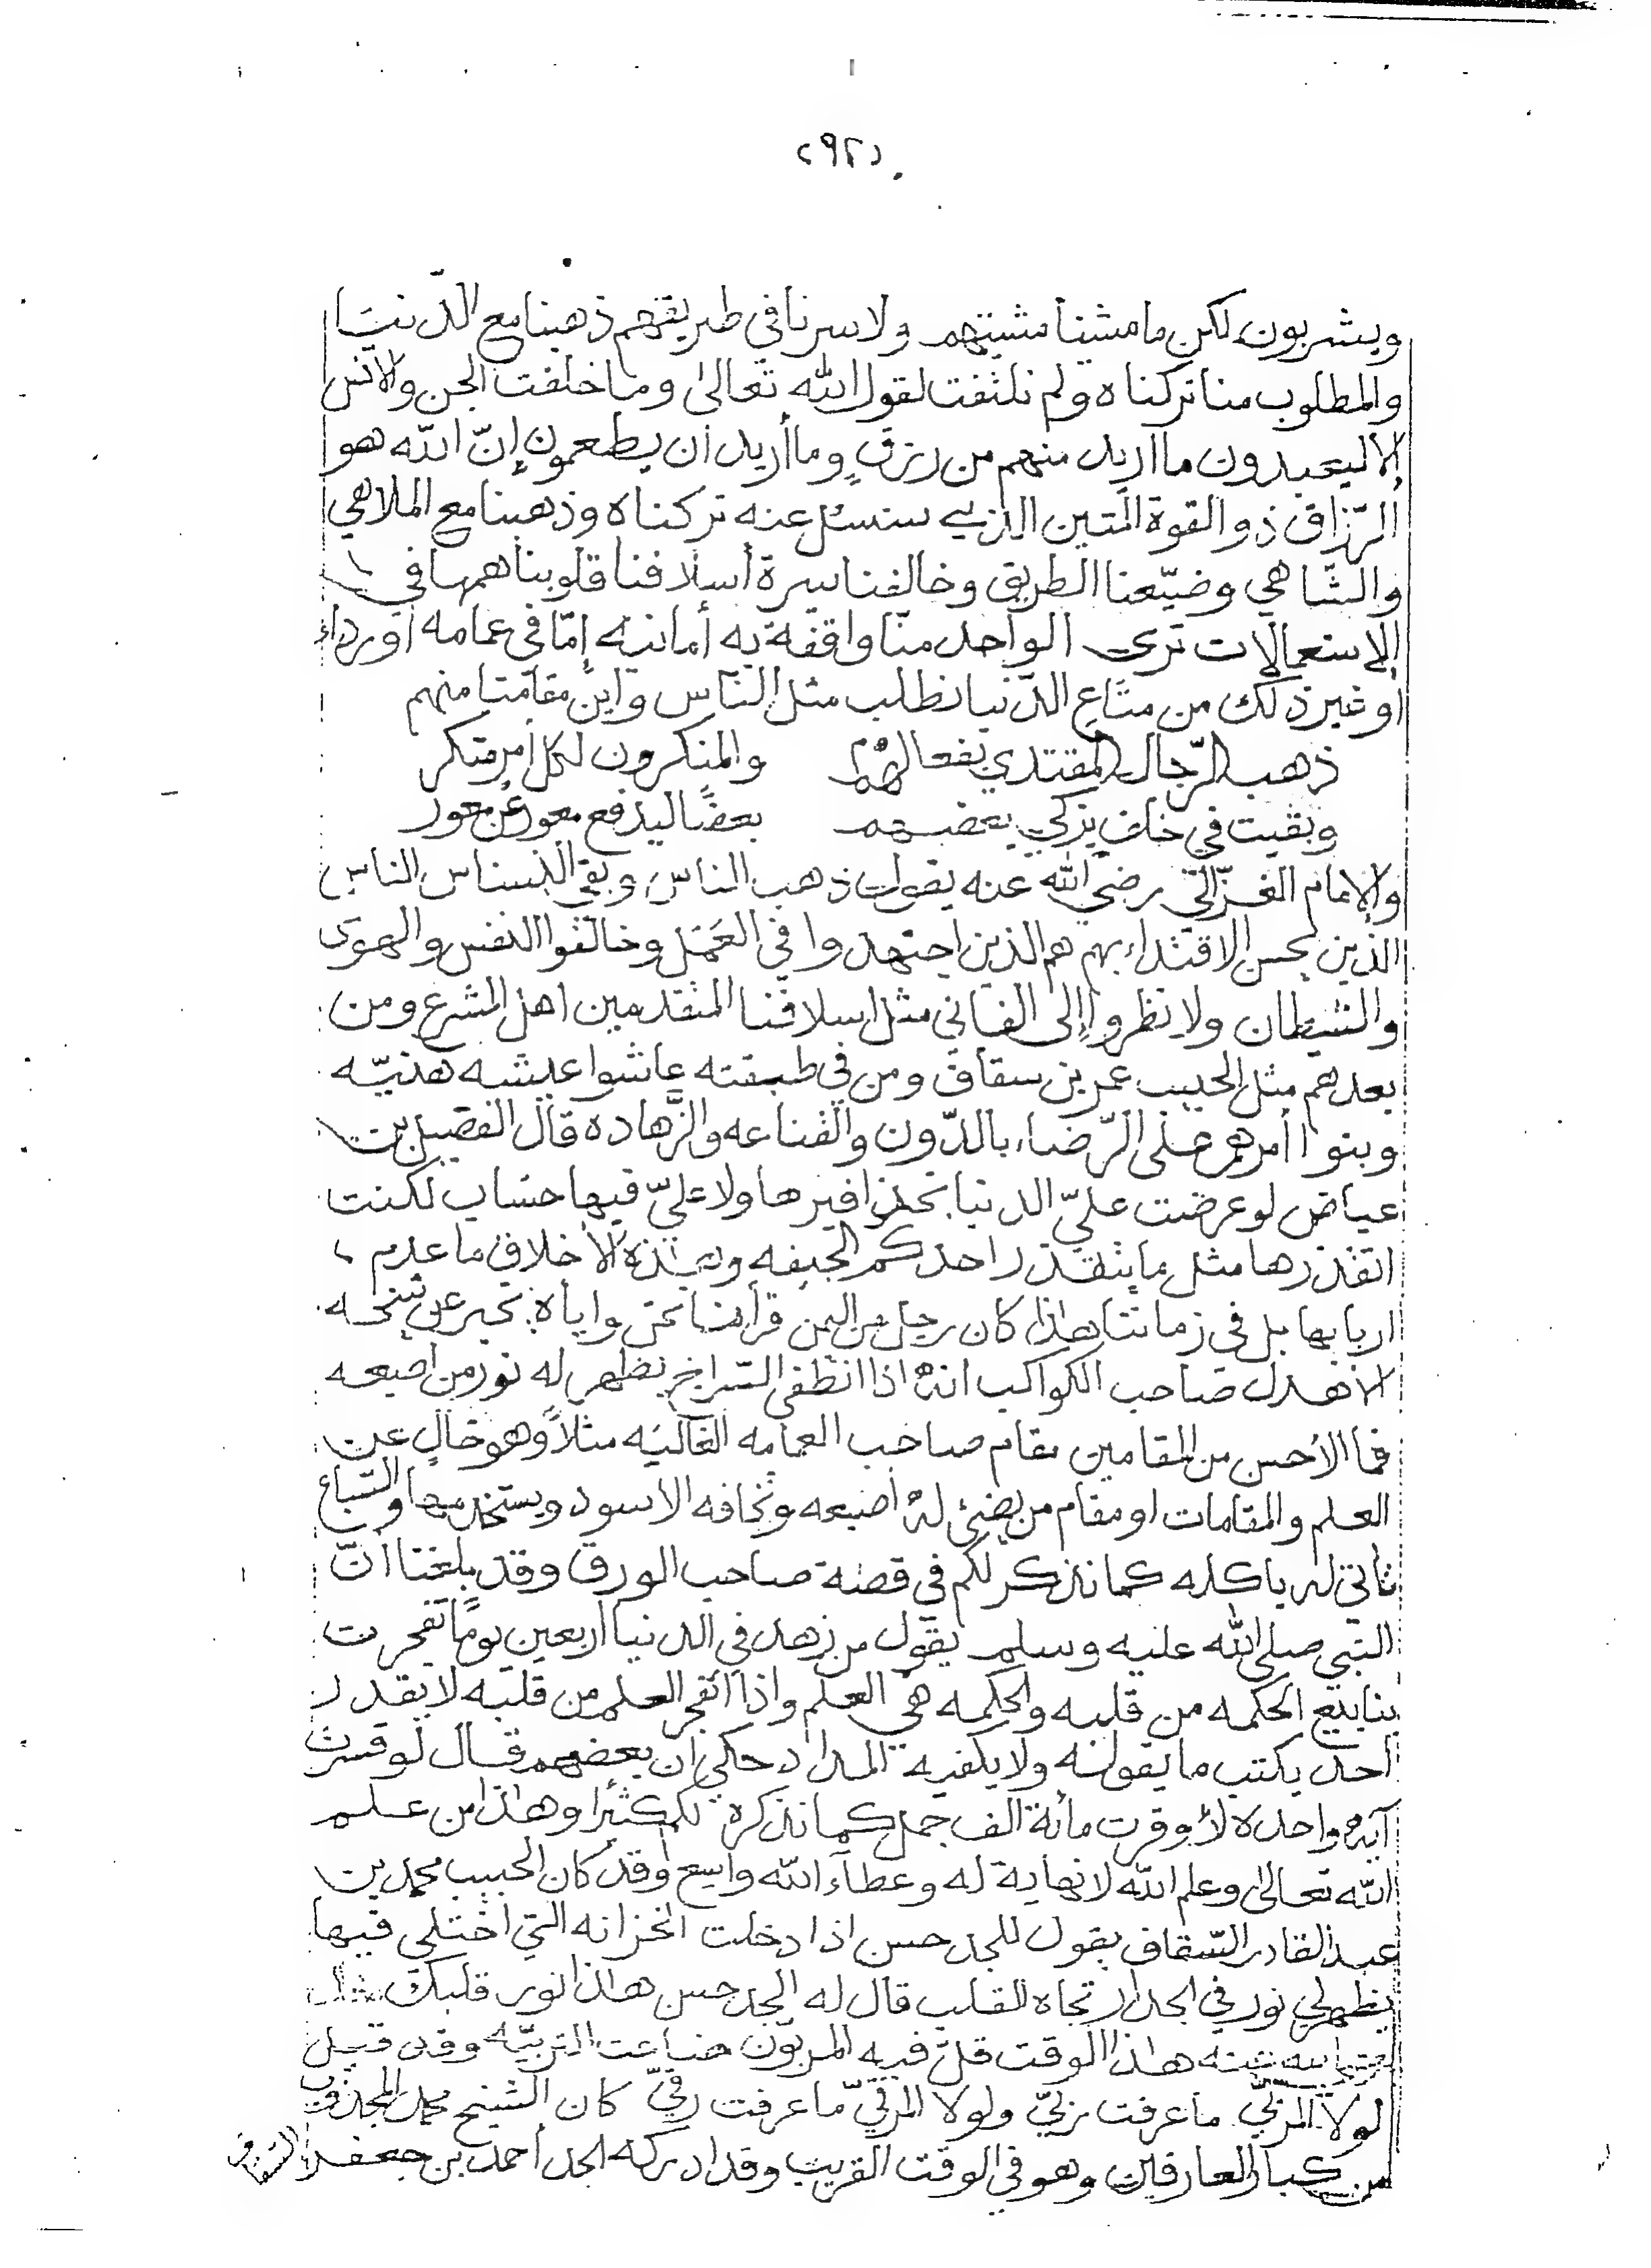 (٩٢)
ويشربون لكن ما مشينا مشيتهم ولا سرنا في طريقهم ذهبنا مع الدنيا
والمطلوب منا تركناه ولم نلتفت لقول الله تعالى وما خلقت الجن والانس
إلا ليعبدون ما اريد منهم من رزقٍ وما أريد ان يطعمون إنّ الله هو
الرّزاق ذو القوة المتين الذي سنسئل عنه تركناه وذهبنا مع الملاهي
والشّاهي وضيّعنا الطريق وخالفنا سرة أسلافنا قلوبنا همها في
الإستعمالات ترى الواحد منّا واقفة به أمانيه إمّا في عمامه اورداء
أوغير ذلك من متاع الدّنيا نطلب مثل النّاس واين مقامنا منهم
ذهب الرّجال المقتدي بفعالهم والمنكرون لكل امر منكر
وبقيت في خلف يزكي بعضهم بعضًا ليدفع معور عن معور
والإمام الغزّالي رضي الله عنه يقول ذهب الناس وبقي النسناس الناس
الذين يحسن الاقتداء بهم هم الذين اجتهدوا في العَمَل وخالفوا النفس والهوى
والشيطان ولا نظروا إلى الفاني مثل اسلافنا المتقدمين اهل المشرع ومن
بعدهم مثل الحبيب عمر بن سقاف ومن في طبقته عاشوا عيشه هنيّه
وبنوا أمرهم على الرّضاء بالدّون والقناعه والزّهاده قال الفضيل بن
عياض لو عرضت عليّ الدنيا بحذافيرها ولا عليّ فيها حساب لكنت
اتقذرها مثل ما يتقذر احدكم الجيفه وهذه الأخلاق ما عدم
اربابها بل في زماننا هذا كان رجل من اليمن قرأنا نحن واياه يخبر عن شيخه
الأهدل صاحب الكواكب انه اذا انطفى السّراج يظهر له نور من اصبعه
فما الأحسن من المقامين مقام صاحب العمامه الغاليه مثلاً وهو خالٍ عن
العلم والمقامات او مقام من يضئ له أصبعه وتخافه الاسود ويستخدمها والسّباع
تأتي له بأكله كما نذكر لكم في قصة صاحب الورق وقد بلغنا أنّ
النبي صلى الله عليه وسلم يقول من زهد في الدنيا أربعين يومًا تفجرت
ينابيع الحكمه من قلبه والحكمه هي العلم واذا انفجر العلم من قلبه لا يقدر
احد يكتب ما يقوله ولا يكفيه المداد حكي ان بعضهم قال لو فسرت
آية واحده لأوقرت مائة الف جمل كما نذكره لكم كثيرًا وهذا من علم
الله تعالى وعلم الله لا نهاية له وعطاء الله واسع وقد كان الحبيب محمد بن
عبد القادر السّقاف يقول للجد حسن اذا دخلت الخزانه التي اختلي فيها
يظهر لي نور في الجدار تجاه القلب قال له الجد حسن هذا نور قلبك
هذا الوقت قلّ فيه المربّون ضاعت التربيّه وقد قيل
لولا المربّي ما عرفت ربّي ولولا المرقّي ما عرفت رقيّ كان الشيخ محمد المجذوب
من كبار العارفين وهو في الوقت القريب وقد ادركه الجد أحمد بن جعفر السقاف